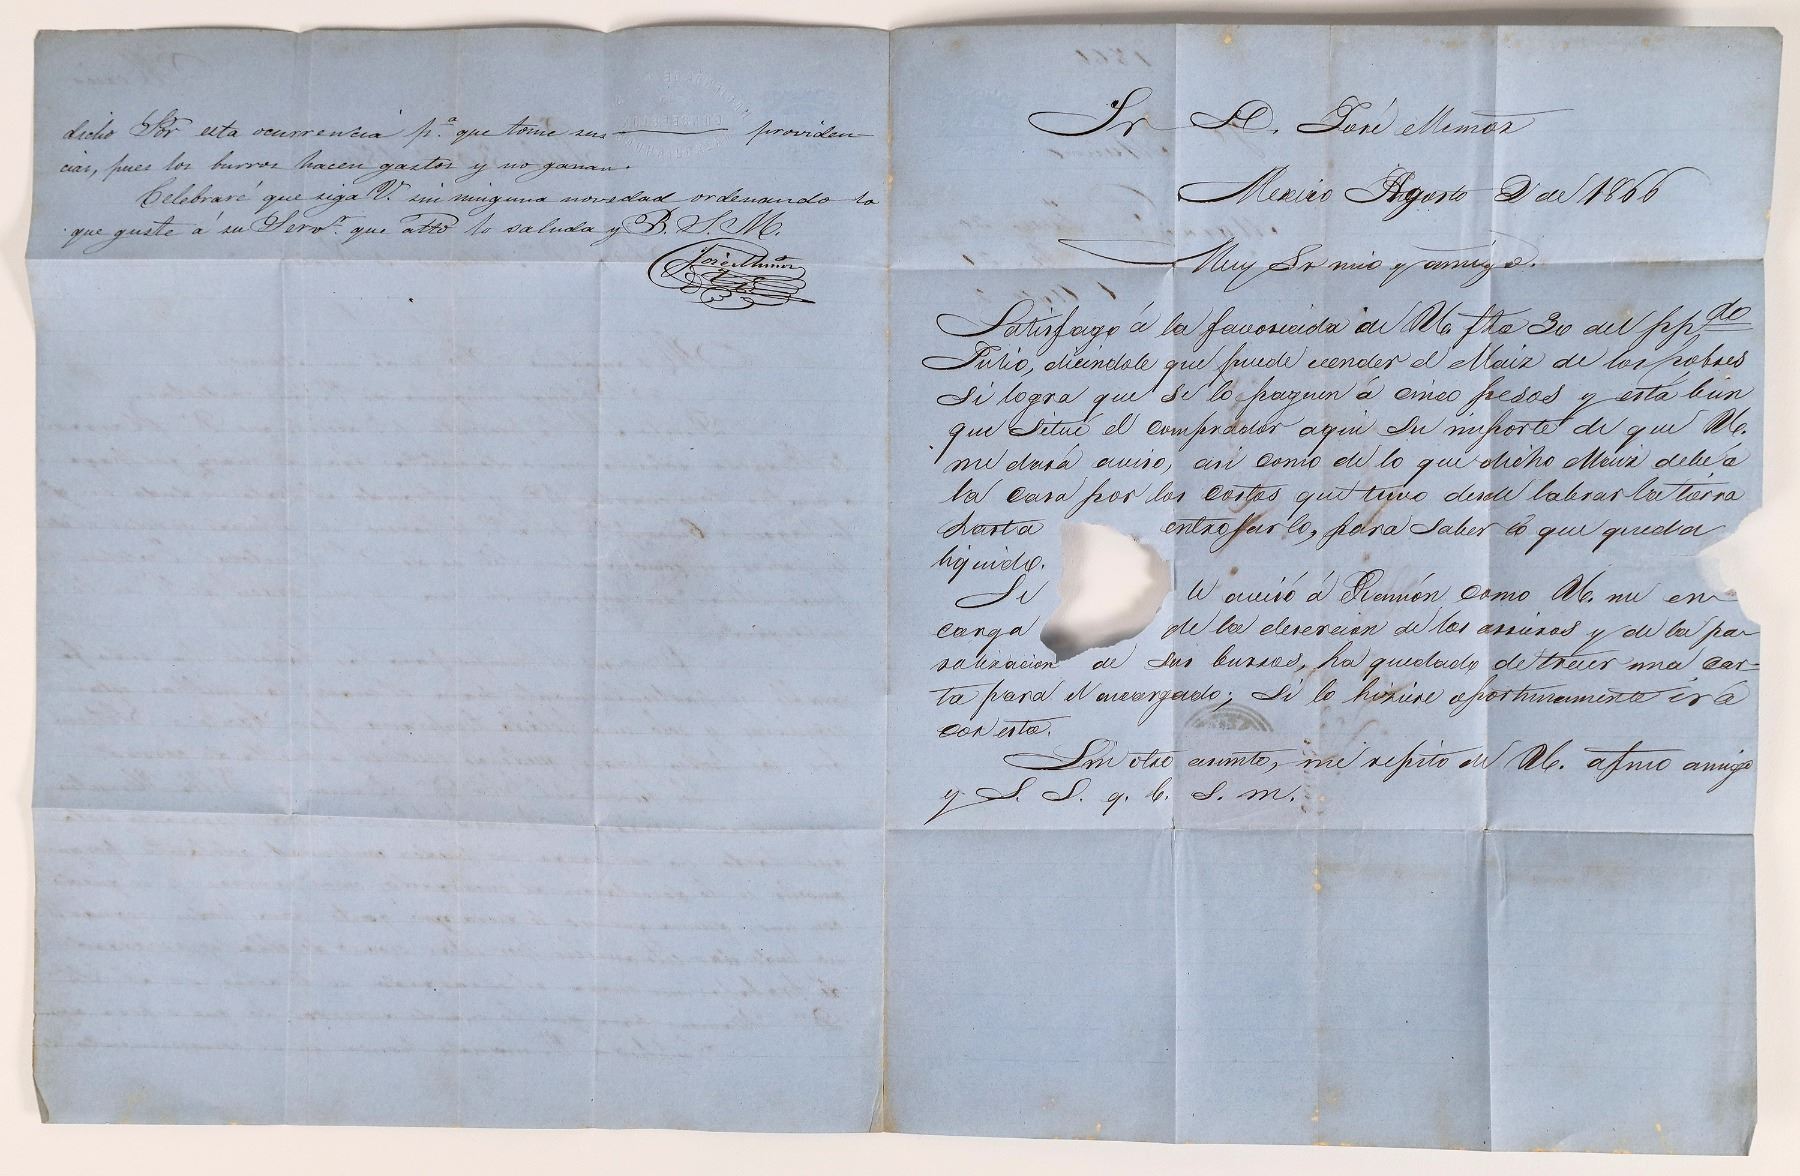 dicho Sor esta ocurrencia p.a que tome sus providen
cias, pues los burros hacen gastos y no ganan.
Celebraré que siga V. sin ninguna novedad ordenando lo
que guste á su Servor. que atto lo saluda y B. S. M.
José Muñoz
Sr D. José Muñoz
Mexico Agosto 2 de 1866
Muy Sr mio y amigo.
Satisfago á la favorecida de U. fha 30 del ppdo
Julio, diciendole que puede vender el Maiz de los pobres
si logra que se lo paguen á cinco pesos y está bien
que situé el comprador aqui su importe de que U.
me dará aviso, asi como de lo que dicho Maiz debe á
la casa por los costos que tuvo desde labrar la tierra
hasta entrojarlo, para saber lo que queda
liquido.
Se le avisó á Ramón como U. me en
carga de la desercion de los arrieros y de la pa-
ralizacion de sus burros, ha quedado de traer una car-
ta para el encargado; si lo hiciere oportunamente irá
con esta.
Sin otro asunto, me repito de U. afmo amigo
y S. S. q. b. S. m.